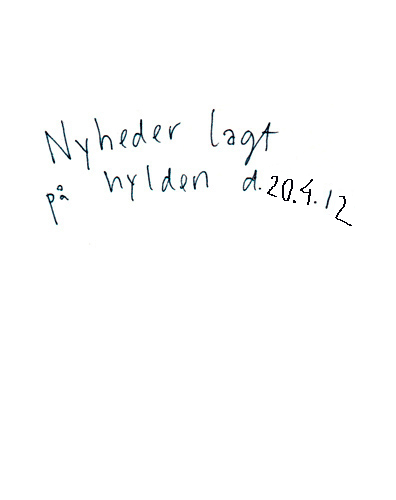 Nyheder lagt
på hylden d. 20.4.12